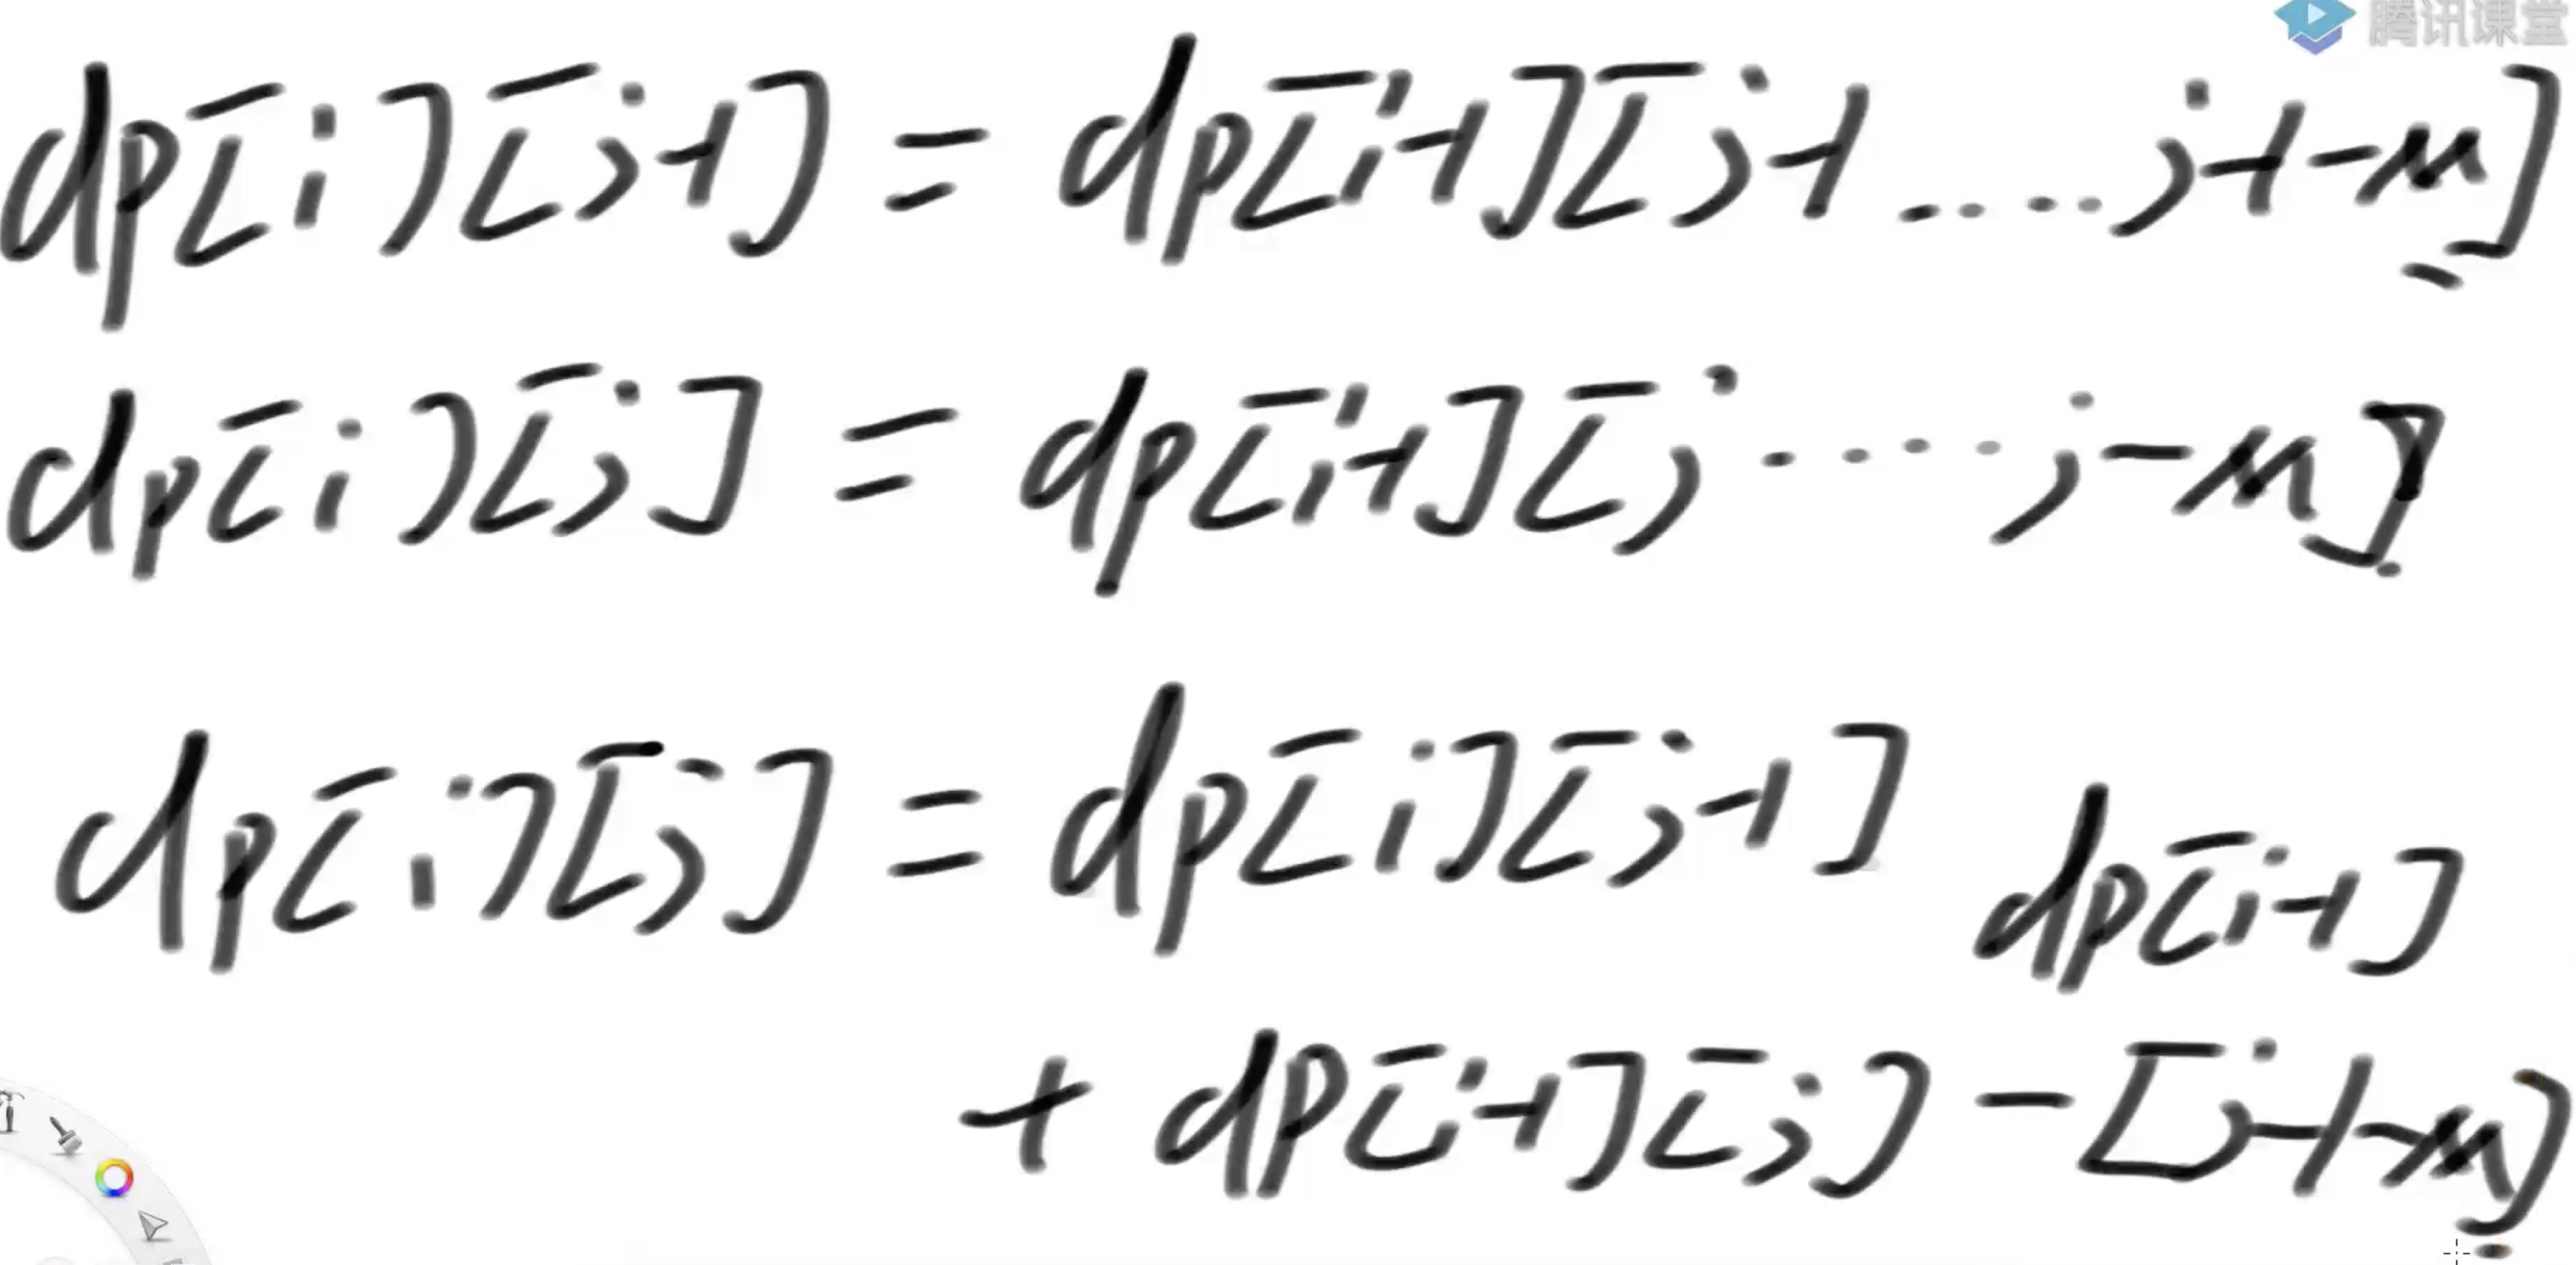 腾讯课堂
dp[i][j-1] = dp[i-1][j-1 ..... j-1-M]
dp[i][j] = dp[i-1][j .... j-M]
dp[i][j] = dp[i][j-1]
dp[i-1]
+ dp[i-1][j] - [j-1-M]